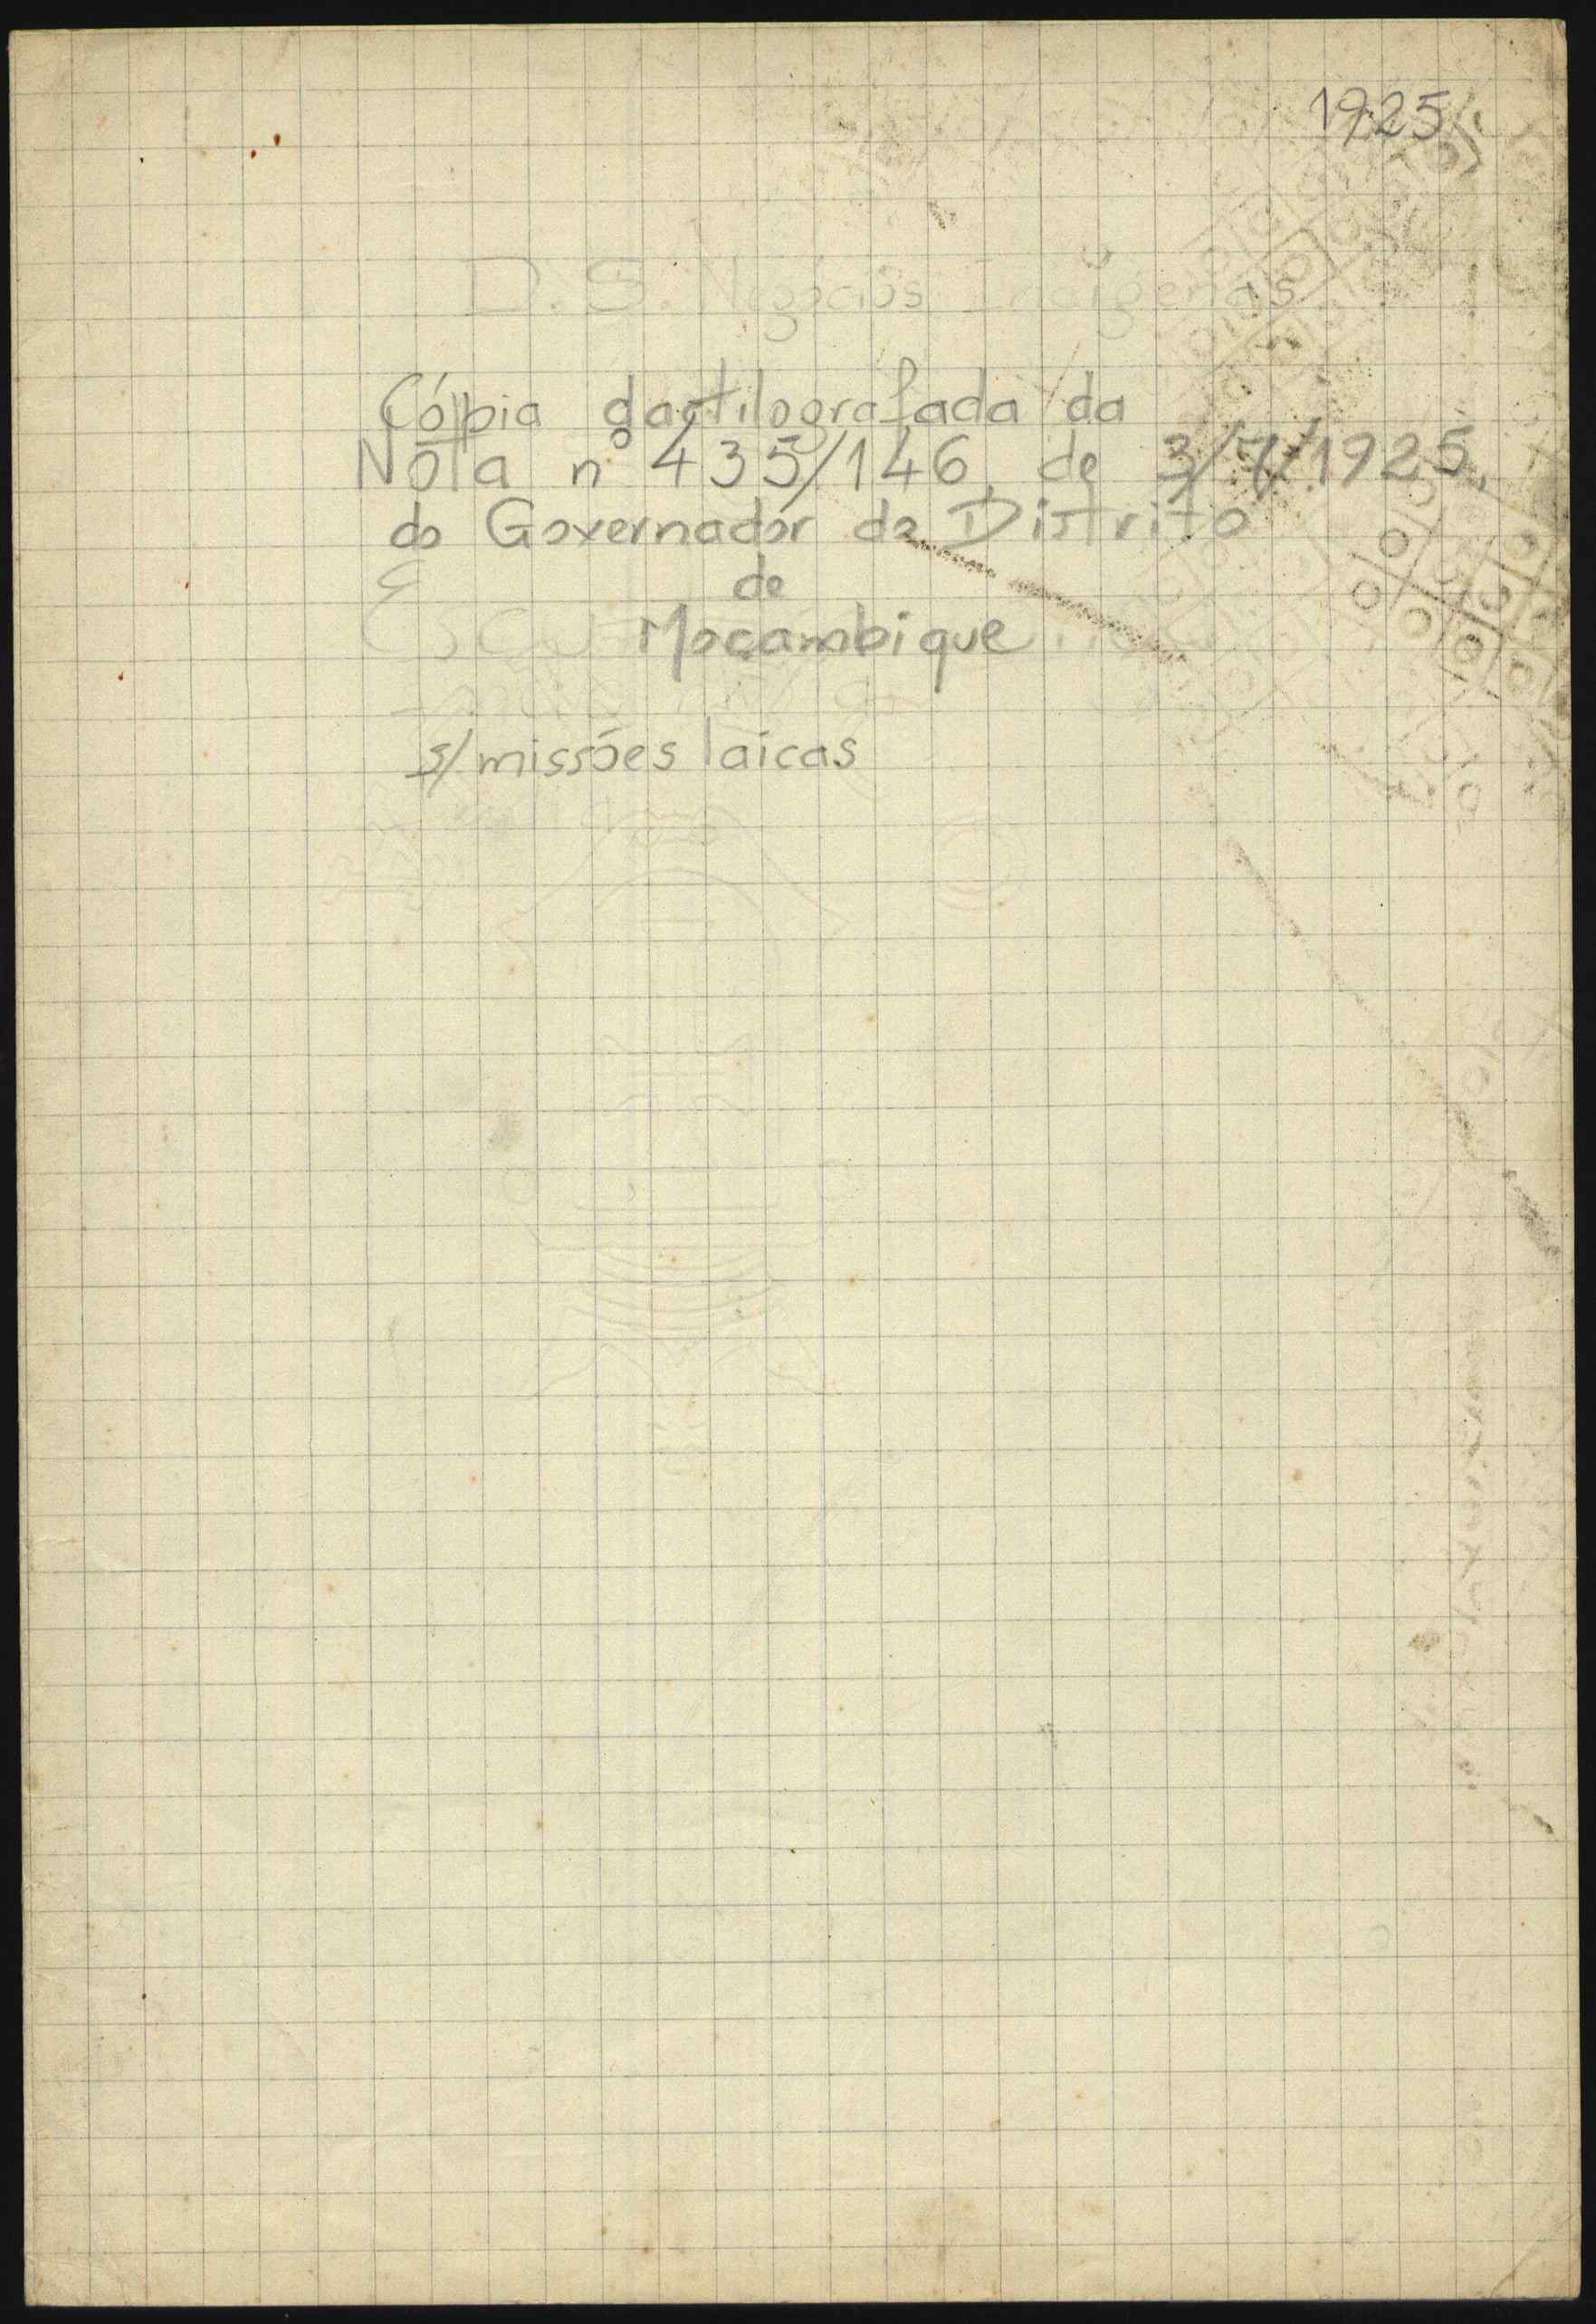 1925
D.S. Negócios Indígenas
Cópia dactilografada da
Nota nº 435/146, de 3/7/1925,
do Governador do Distrito
de
Moçambique
s/ missões laicas